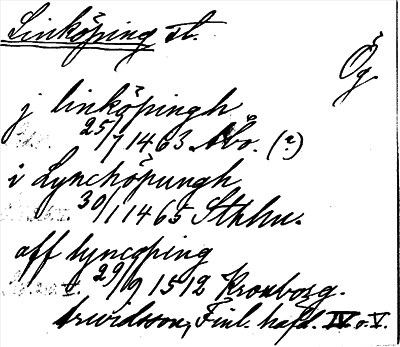 Linköping st.
Ög.
j linköpingh
25/7 1463 Åbo. (?)
i Lynchöpungh
30/1 1465 Sthlm.
aff lyncöping
29/9 1512 Kronborg.
Arwidsson, Finl. häfd. IV o. V.